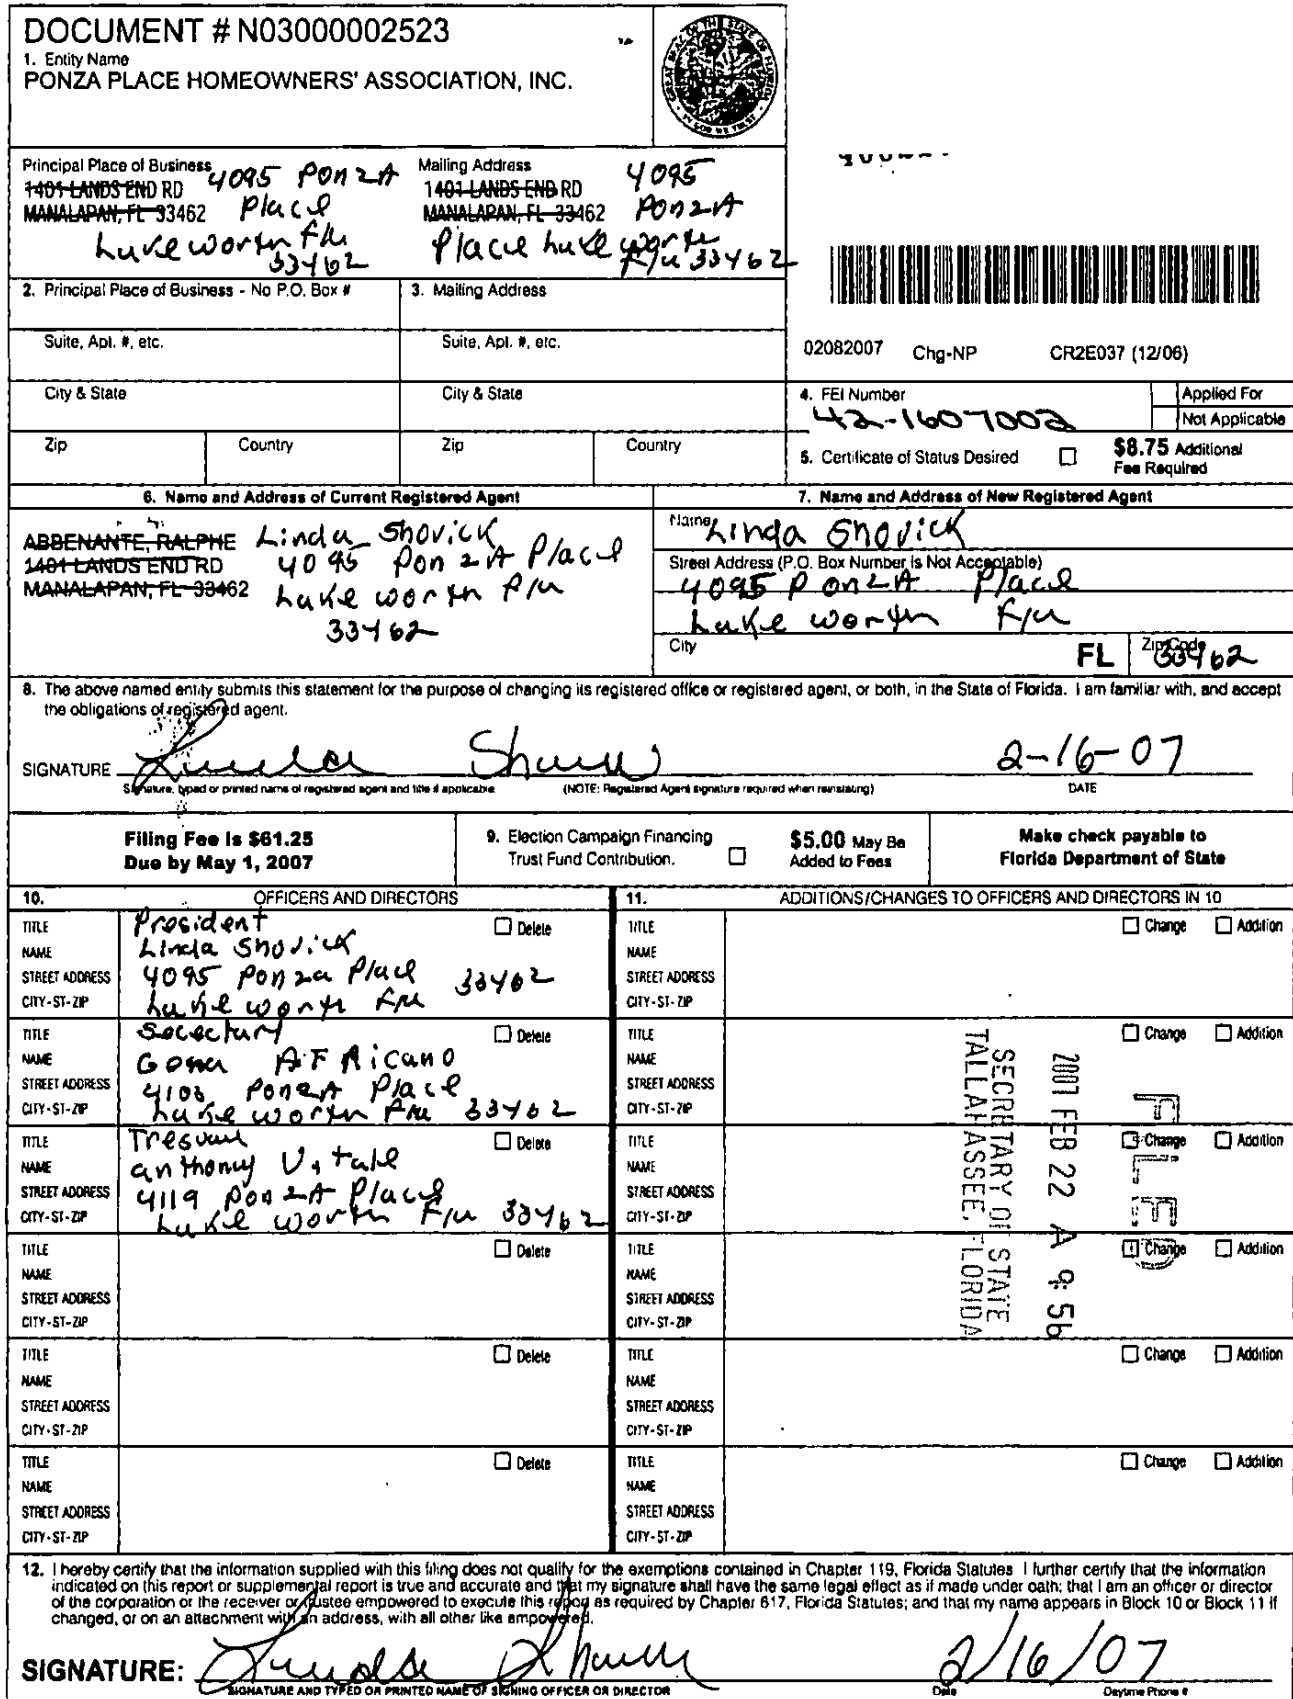 DOCUMENT # N03000002523
1. Entity Name
PONZA PLACE HOMEOWNERS' ASSOCIATION, INC.
Principal Place of Business
1401 LANDS END RD
MANALAPAN, FL 33462
4095 PonzA
Place
Lake worth Fla
33462
Mailing Address
1401 LANDS END RD
MANALAPAN, FL 33462
4095
PonzA
Place Lake worth
Fla 33462
2. Principal Place of Business - No P.O. Box #
3. Mailing Address
Suite, Apt. #, etc.
Suite, Apt. #, etc.
City & State
City & State
Zip Country
Zip Country
02082007 Chg-NP CR2E037 (12/06)
4. FEI Number
42-1607002
Applied For
Not Applicable
5. Certificate of Status Desired
$8.75 Additional
Fee Required
6. Name and Address of Current Registered Agent
ABBENANTE, RALPHE
1401 LANDS END RD
MANALAPAN, FL 33462
Linda Shovick
4095 PonzA Place
Lake worth Fla
33462
7. Name and Address of New Registered Agent
Name
Linda Shovick
Street Address (P.O. Box Number is Not Acceptable)
4095 PonzA Place
Lake worth Fla
City FL Zip Code 33462
8. The above named entity submits this statement for the purpose of changing its registered office or registered agent, or both, in the State of Florida. I am familiar with, and accept
the obligations of registered agent.
SIGNATURE 2-16-07
Signature, typed or printed name of registered agent and title if applicable. (NOTE: Registered Agent signature required when reinstating) DATE
Filing Fee is $61.25
Due by May 1, 2007
9. Election Campaign Financing
Trust Fund Contribution.
$5.00 May Be
Added to Fees
Make check payable to
Florida Department of State
10. OFFICERS AND DIRECTORS
11. ADDITIONS/CHANGES TO OFFICERS AND DIRECTORS IN 10
TITLE President Delete
NAME Linda Shovick
STREET ADDRESS 4095 Ponza Place 33462
CITY-ST-ZIP Lake worth Fla
TITLE Change Addition
NAME
STREET ADDRESS
CITY-ST-ZIP
TITLE Delete
NAME AFRicano
STREET ADDRESS PonzA Place
CITY-ST-ZIP Lake worth Fla 33462
TITLE Change Addition
NAME
STREET ADDRESS
CITY-ST-ZIP
TITLE Delete
NAME anthony Vitale
STREET ADDRESS 4119 PonzA Place
CITY-ST-ZIP Lake worth Fla 33462
TITLE Change Addition
NAME
STREET ADDRESS
CITY-ST-ZIP
TITLE Delete
NAME
STREET ADDRESS
CITY-ST-ZIP
TITLE Change Addition
NAME
STREET ADDRESS
CITY-ST-ZIP
TITLE Delete
NAME
STREET ADDRESS
CITY-ST-ZIP
TITLE Change Addition
NAME
STREET ADDRESS
CITY-ST-ZIP
TITLE Delete
NAME
STREET ADDRESS
CITY-ST-ZIP
TITLE Change Addition
NAME
STREET ADDRESS
CITY-ST-ZIP
FILED
2007 FEB 22 A 9:56
SECRETARY OF STATE
TALLAHASSEE, FLORIDA
12. I hereby certify that the information supplied with this filing does not qualify for the exemptions contained in Chapter 119, Florida Statutes. I further certify that the information
indicated on this report or supplemental report is true and accurate and that my signature shall have the same legal effect as if made under oath; that I am an officer or director
of the corporation or the receiver or trustee empowered to execute this report as required by Chapter 617, Florida Statutes; and that my name appears in Block 10 or Block 11 if
changed, or on an attachment with an address, with all other like empowered.
SIGNATURE: 2/16/07
SIGNATURE AND TYPED OR PRINTED NAME OF SIGNING OFFICER OR DIRECTOR Date Daytime Phone #